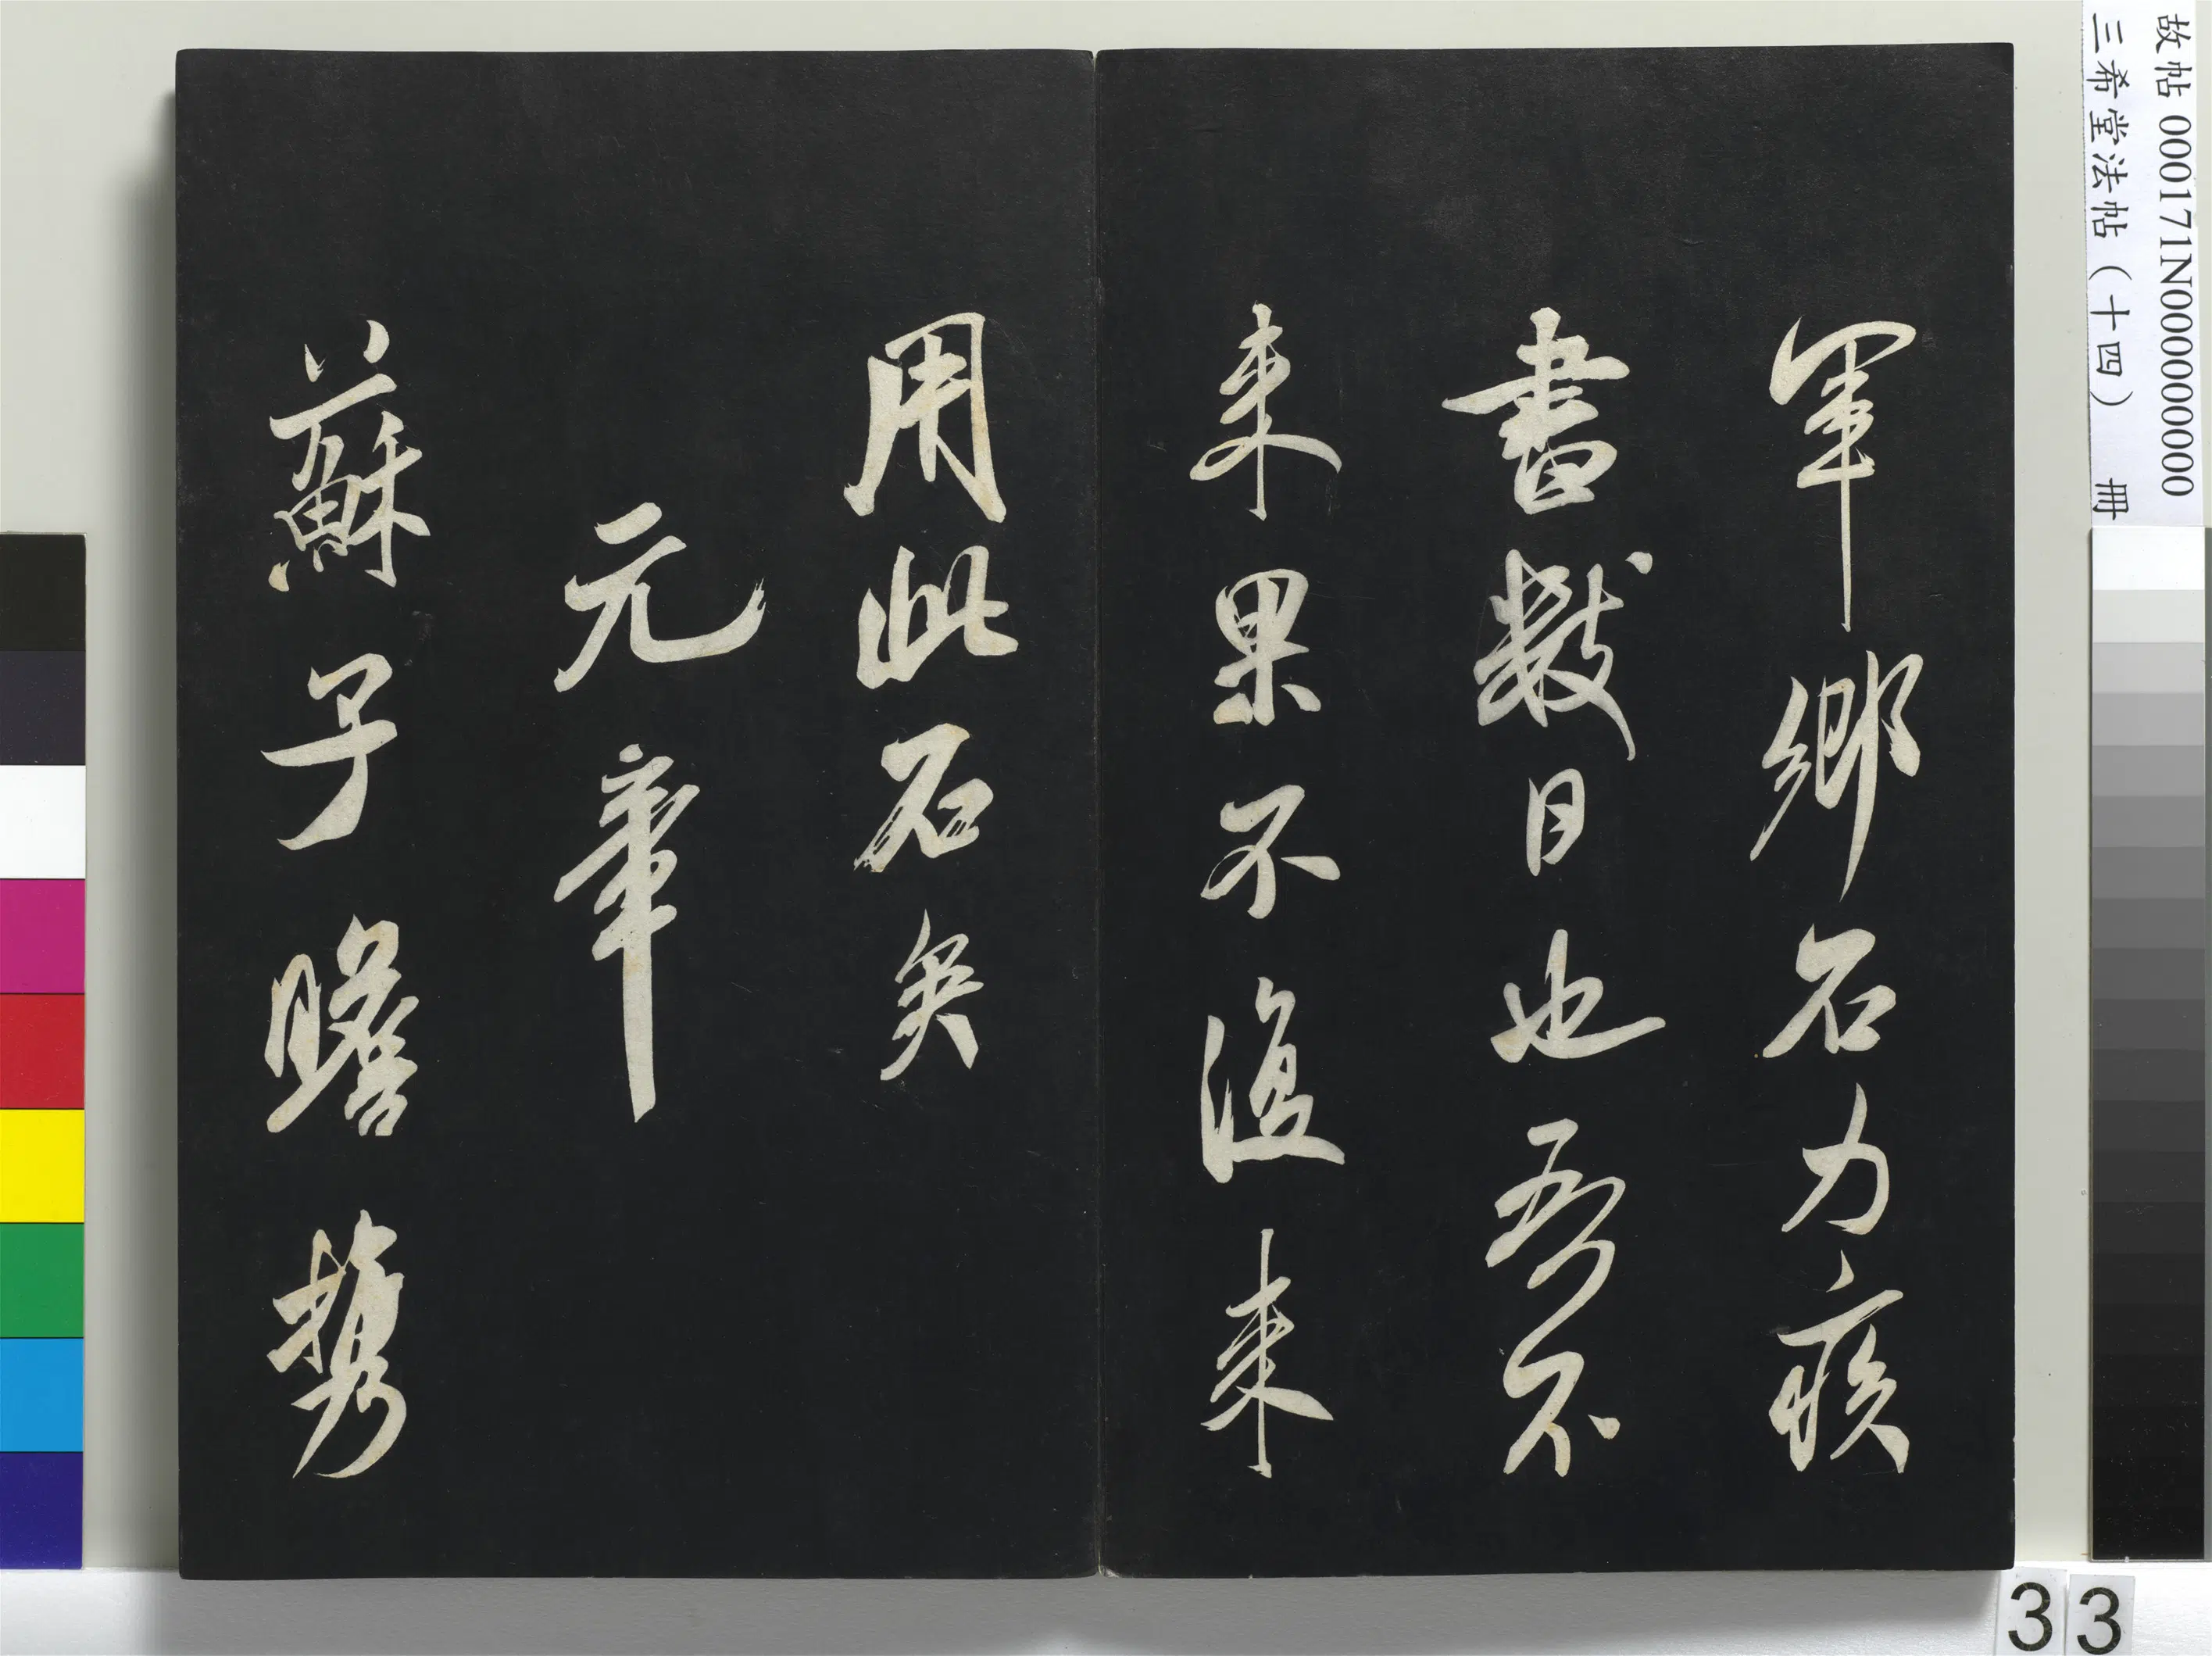 故帖 000171N000000000
三希堂法帖（十四） 冊
軍鄉石力疾
書數日也吾不
来果不復来
用此石矣
元章
蘇子瞻携
33